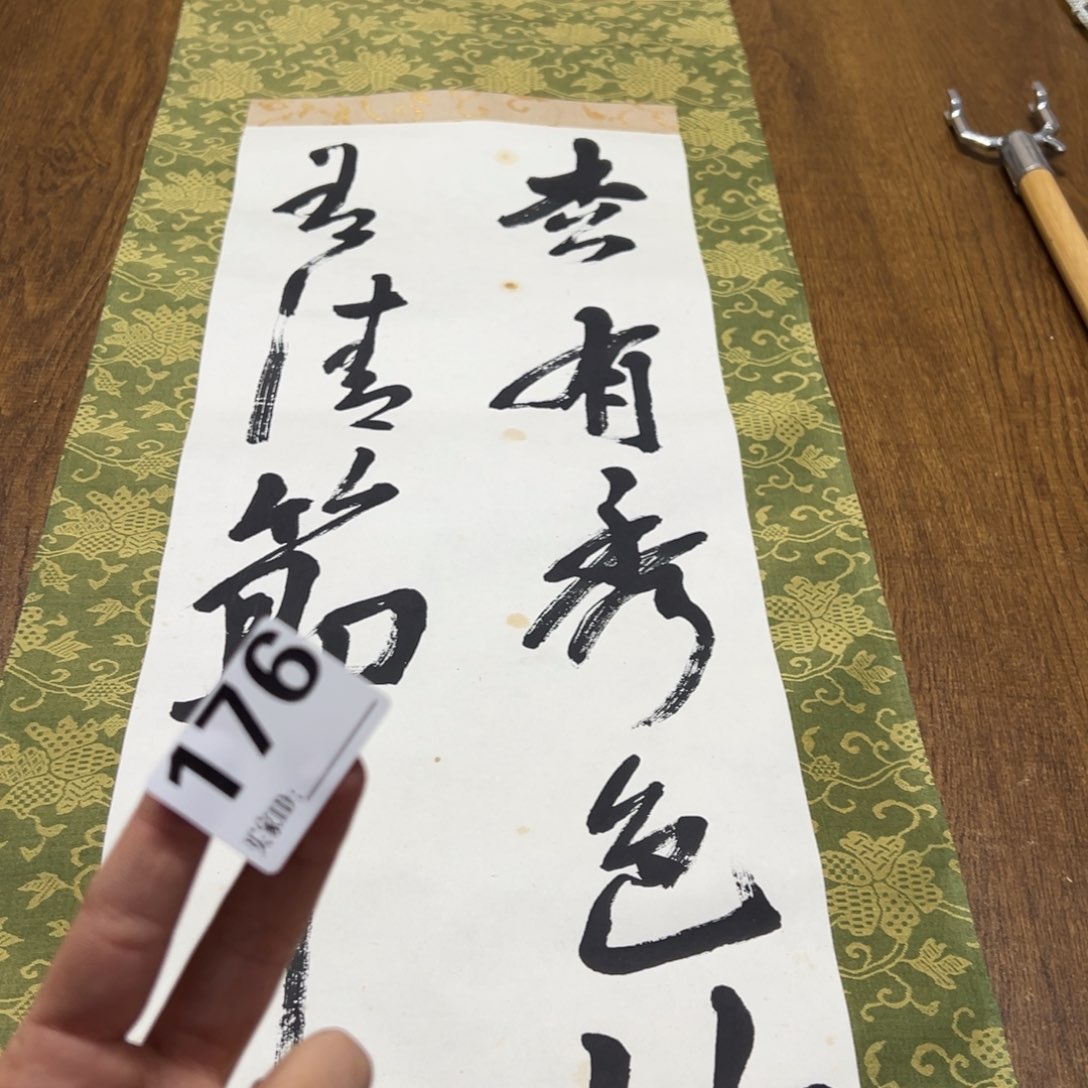 枩有秀色
清節
176
买家ID: